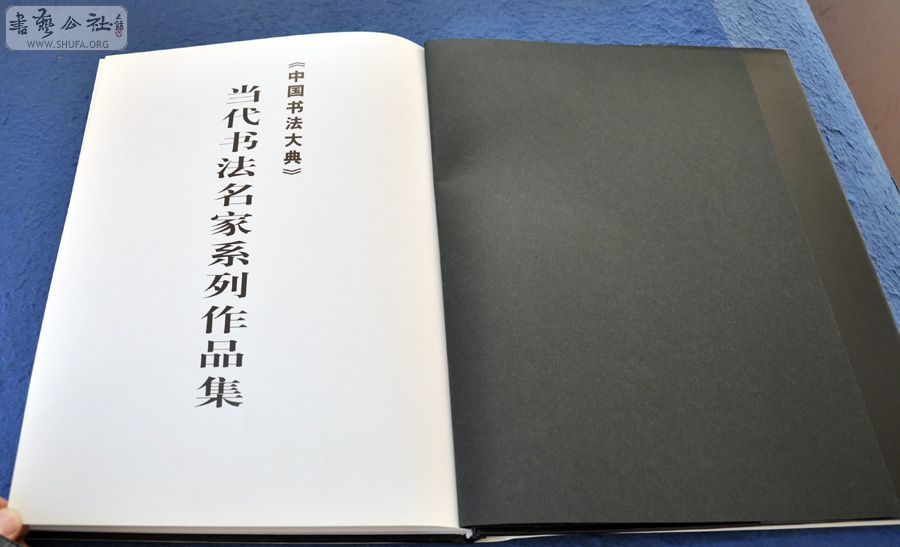 書藝公社
WWW.SHUFA.ORG
《中国书法大典》
当代书法名家系列作品集